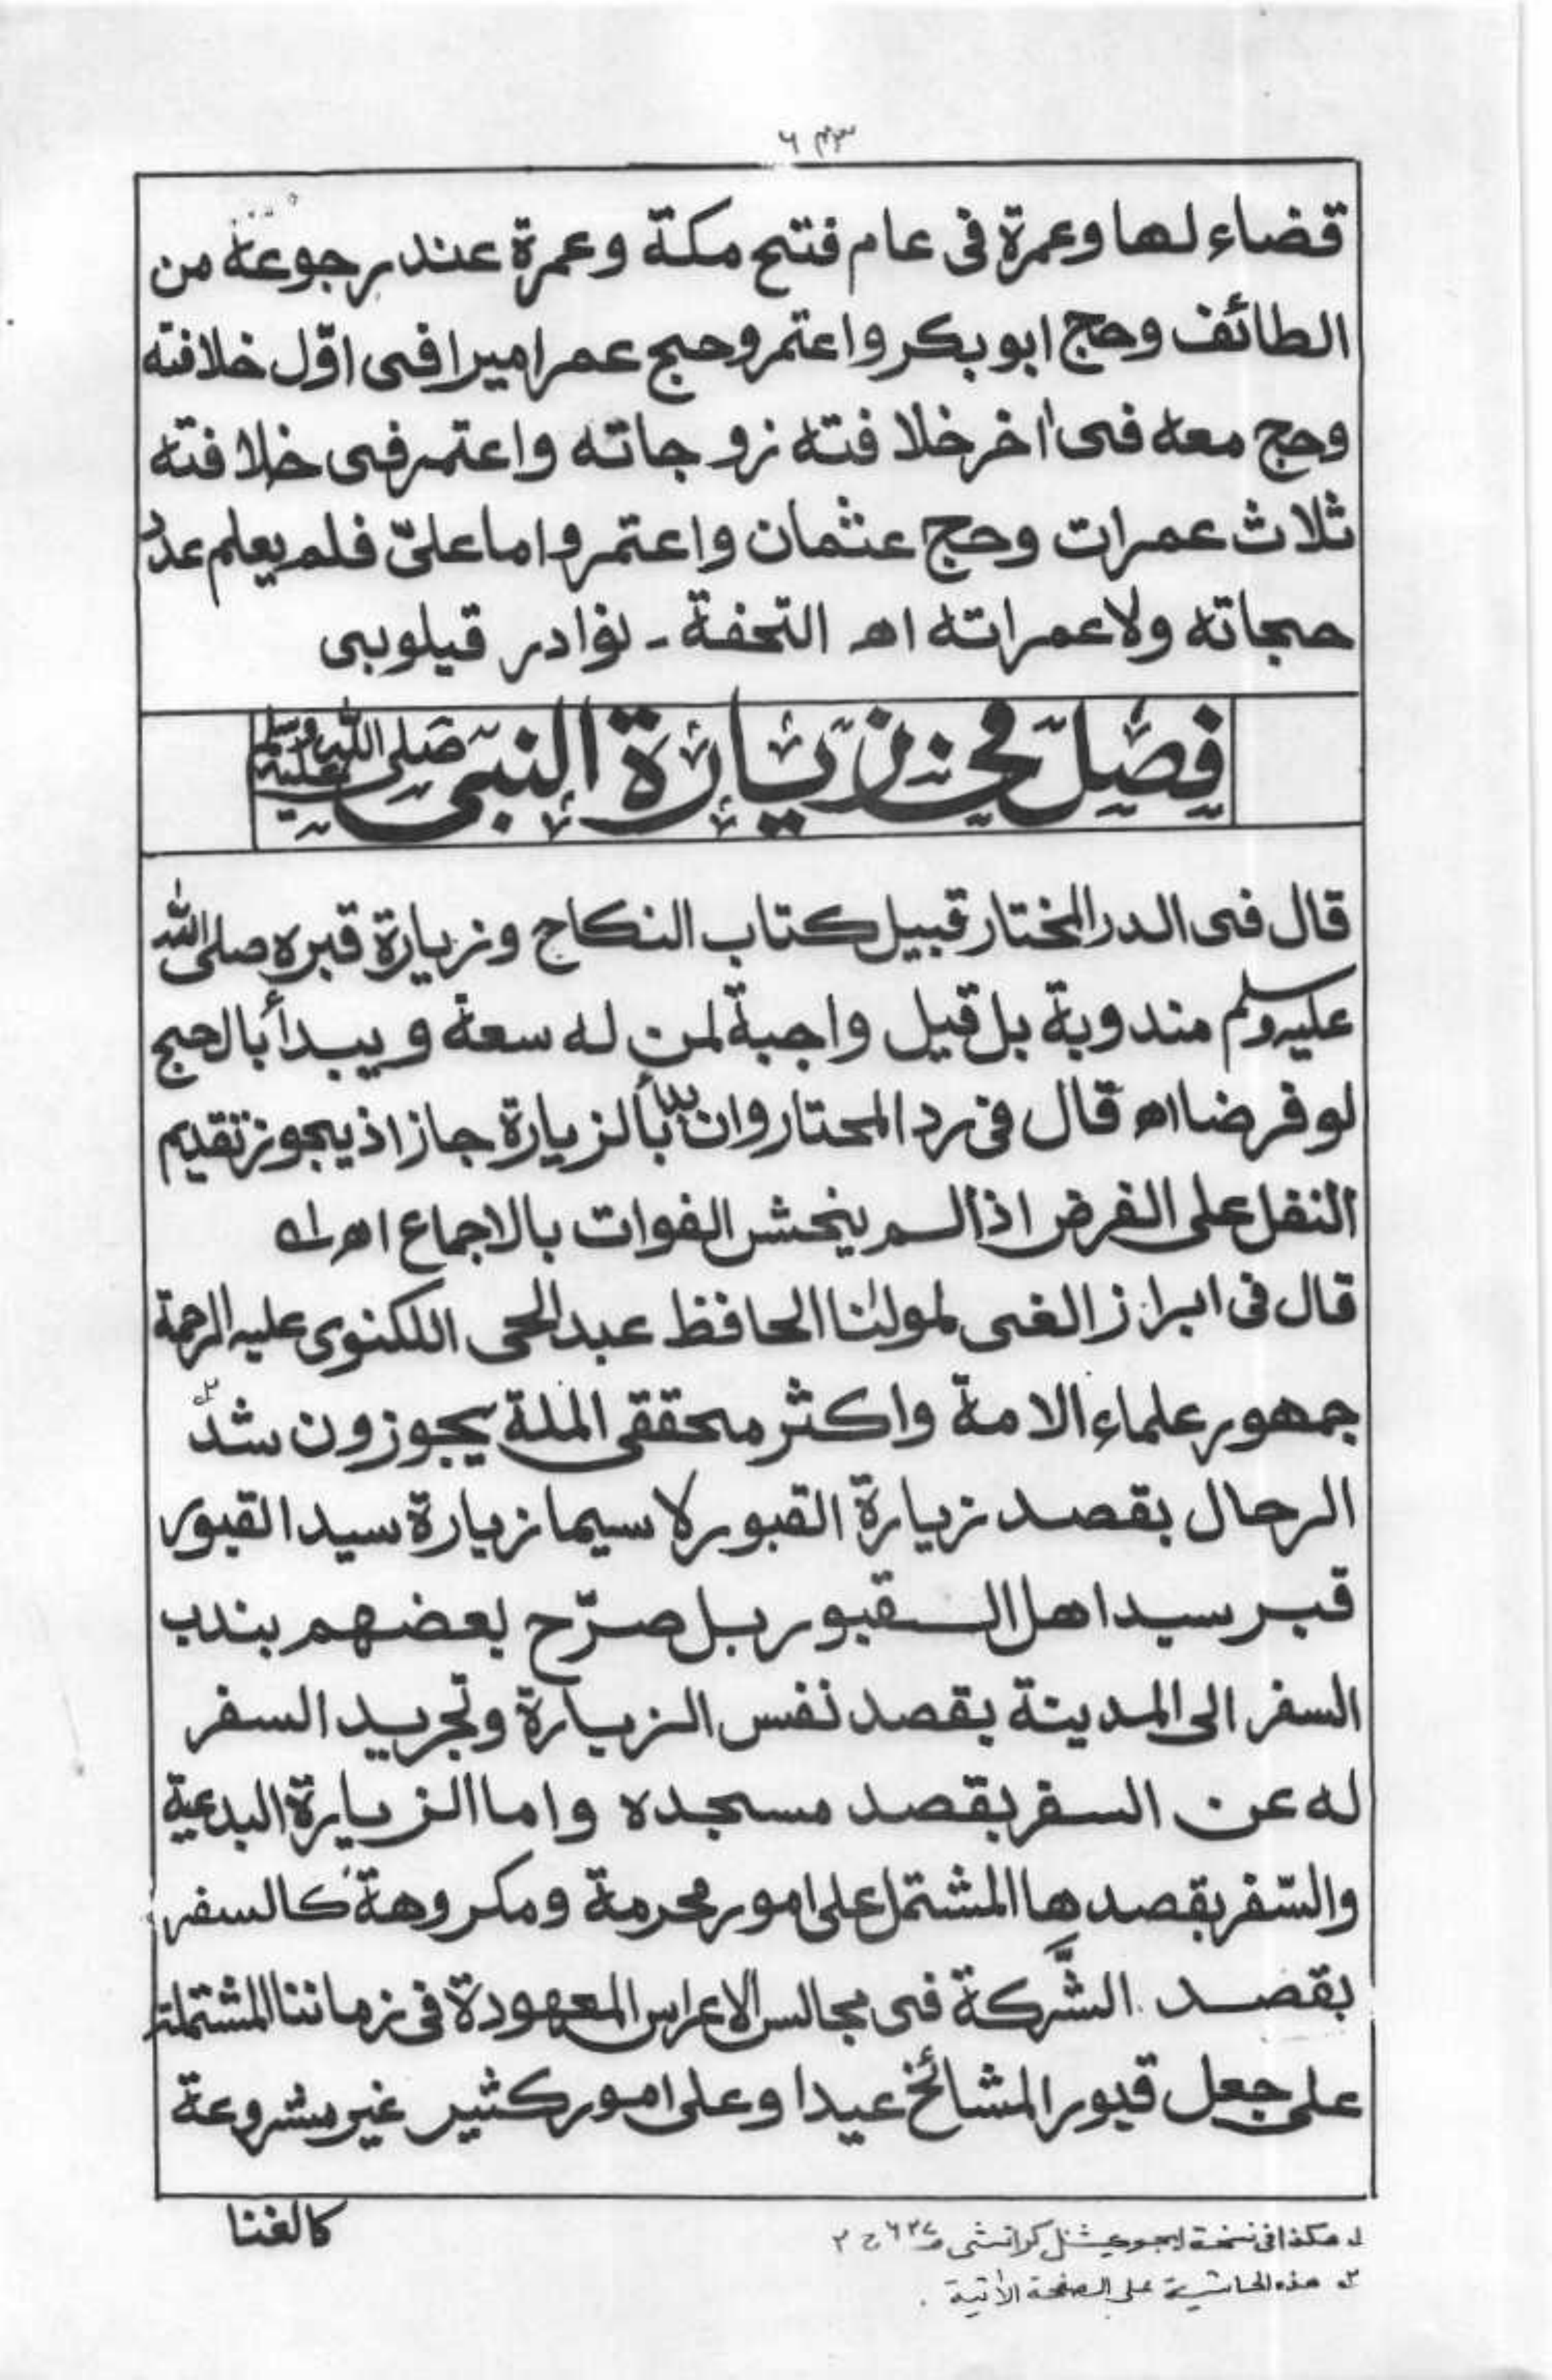 ٦٤٣
قضاء لها وعمرة فى عام فتح مكة وعمرة عند رجوعه من
الطائف وحج ابو بكر واعتمر وحج عمر اميرا فى اوّل خلافته
وحج معه فى اٰخر خلافته زوجاته واعتمر فى خلافته
ثلاث عمرات وحج عثمان واعتمر واما علىّ فلم يعلم عدد
حجاته ولا عمراته اھ التحفة ـ نوادر قيلوبى
فصل في زيارة النبى صلى الله عليه وسلم
قال فى الدر المختار قبيل كتاب النكاح وزيارة قبره صلى الله
عليه وسلم مندوبة بل قيل واجبة لمن له سعة ويبدأ بالحج
لو فرضا اھ قال فى رد المحتار وان بدأ بالزيارة جاز اذ يجوز تقديم
النفل على الفرض اذا لم يخش الفوات بالاجماع اھ ١ه
قال فى ابراز الغى لمولٰنا الحافظ عبد الحى اللكنوى عليه الرحمة
جمهور علماء الامة واكثر محققى الملة يجوزون شدّ ٢ه
الرحال بقصد زيارة القبور لا سيما زيارة سيد القبور
قبر سيد اهل القبور بل صرّح بعضهم بندب
السفر الى المدينة بقصد نفس الزيارة وتجريد السفر
له عن السفر بقصد مسجده واما الزيارة البدعية
والسّفر بقصدها المشتمل على امور محرمة ومكروهة كالسفر
بقصد الشَّركة فى مجالس الاعراس المعهودة فى زماننا المشتملة
على جعل قبور المشائخ عيدا وعلى امور كثير غير مشروعة
كالغنا
١ه هكذا فى نسخة ايجوكيشنل كراتشى صـ ٦٢٧ ج ٢
٢ه هذه الحاشية على الصفحة الاٰتية .